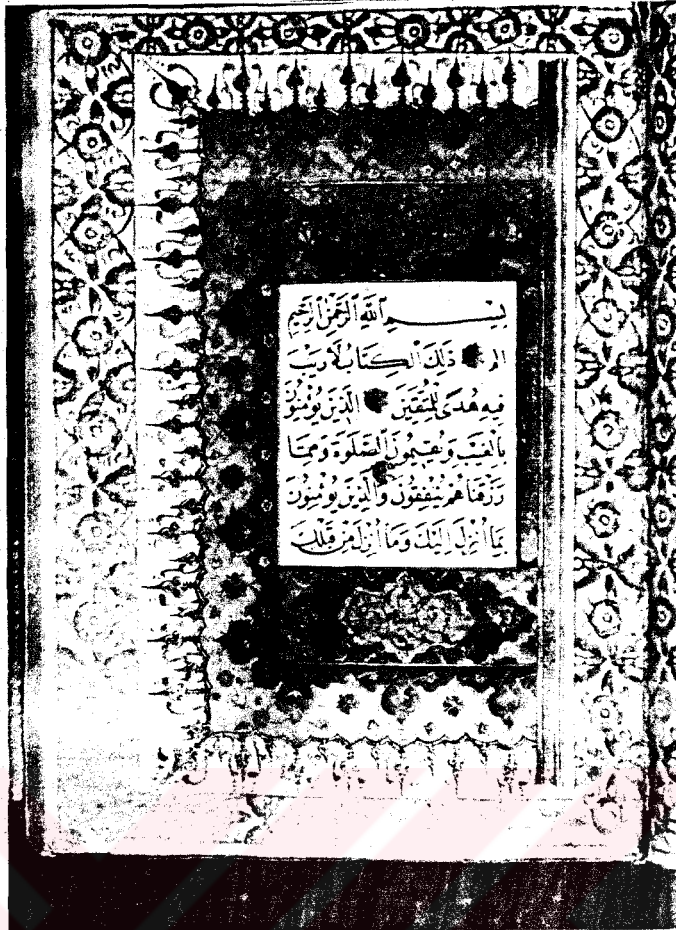 بِسْمِ ٱللَّهِ ٱلرَّحْمٰنِ ٱلرَّحِيمِ
الٓمٓ ذٰلِكَ ٱلْكِتَابُ لَا رَيْبَ
فِيهِ هُدًى لِلْمُتَّقِينَ الَّذِينَ يُؤْمِنُونَ
بِالْغَيْبِ وَيُقِيمُونَ ٱلصَّلٰوةَ وَمِمَّا
رَزَقْنَاهُمْ يُنْفِقُونَ وَالَّذِينَ يُؤْمِنُونَ
بِمَا أُنْزِلَ إِلَيْكَ وَمَا أُنْزِلَ مِنْ قَبْلِكَ